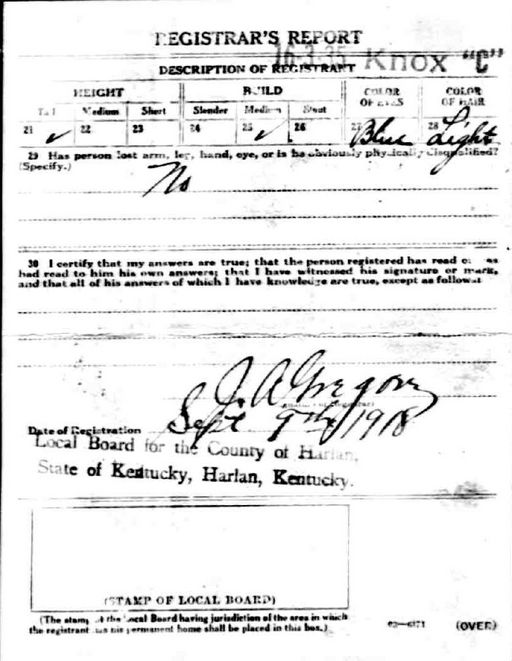 REGISTRAR'S REPORT
16-3-35 Knox "C"
DESCRIPTION OF REGISTRANT
HEIGHT BUILD COLOR OF EYES COLOR OF HAIR
Tall Medium Short Slender Medium Stout
21 ✓ 22 23 24 25 ✓ 26 27 Blue 28 Light
29 Has person lost arm, leg, hand, eye, or is he obviously physically disqualified?
(Specify.) No
30 I certify that my answers are true; that the person registered has read or has
had read to him his own answers; that I have witnessed his signature or mark,
and that all of his answers of which I have knowledge are true, except as follows:
J. A. Gregory
Date of Registration Sept 9th 1918
Local Board for the County of Harlan,
State of Kentucky, Harlan, Kentucky.
(STAMP OF LOCAL BOARD)
(The stamp of the Local Board having jurisdiction of the area in which
the registrant has his permanent home shall be placed in this box.)
(OVER)